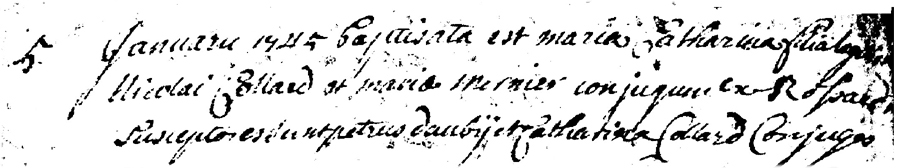 5 Januarii 1745 baptisata est maria Catharina filia legit
Nicolai Collard et mariæ mernier conjugum ex Rossard
Susceptores sunt petrus daubij et Catharina Collard Conjuges